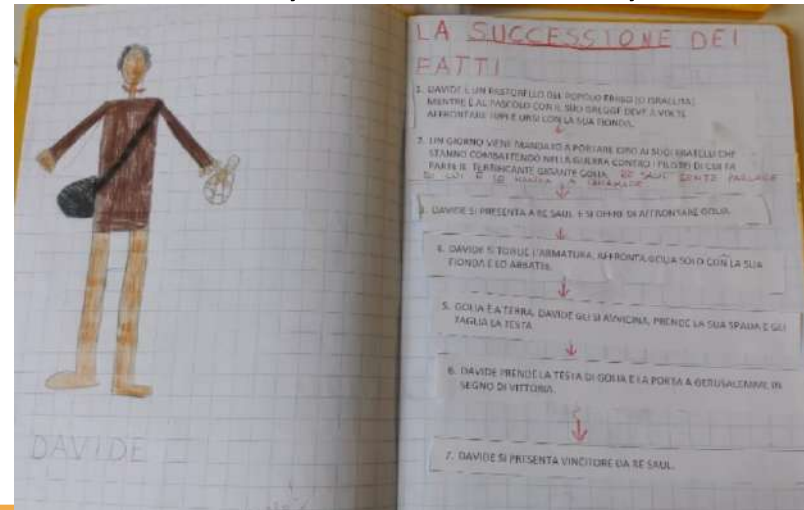 DAVIDE
LA SUCCESSIONE DEI
FATTI
1. DAVIDE È UN PASTORELLO DEL POPOLO EBREO (O ISRAELITA).
MENTRE È AL PASCOLO CON IL SUO GREGGE DEVE A VOLTE
AFFRONTARE LUPI E ORSI CON LA SUA FIONDA.
2. UN GIORNO VIENE MANDATO A PORTARE CIBO AI SUOI FRATELLI CHE
STANNO COMBATTENDO NELLA GUERRA CONTRO I FILISTEI DI CUI FA
PARTE IL TERRIFICANTE GIGANTE GOLIA. RE SAUL SENTE PARLARE
DI LUI E LO MANDA A CHIAMARE
3. DAVIDE SI PRESENTA A RE SAUL E SI OFFRE DI AFFRONTARE GOLIA.
4. DAVIDE SI TOGLIE L'ARMATURA, AFFRONTA GOLIA SOLO CON LA SUA
FIONDA E LO ABBATTE.
5. GOLIA È A TERRA, DAVIDE GLI SI AVVICINA, PRENDE LA SUA SPADA E GLI
TAGLIA LA TESTA
6. DAVIDE PRENDE LA TESTA DI GOLIA E LA PORTA A GERUSALEMME IN
SEGNO DI VITTORIA.
7. DAVIDE SI PRESENTA VINCITORE DA RE SAUL.